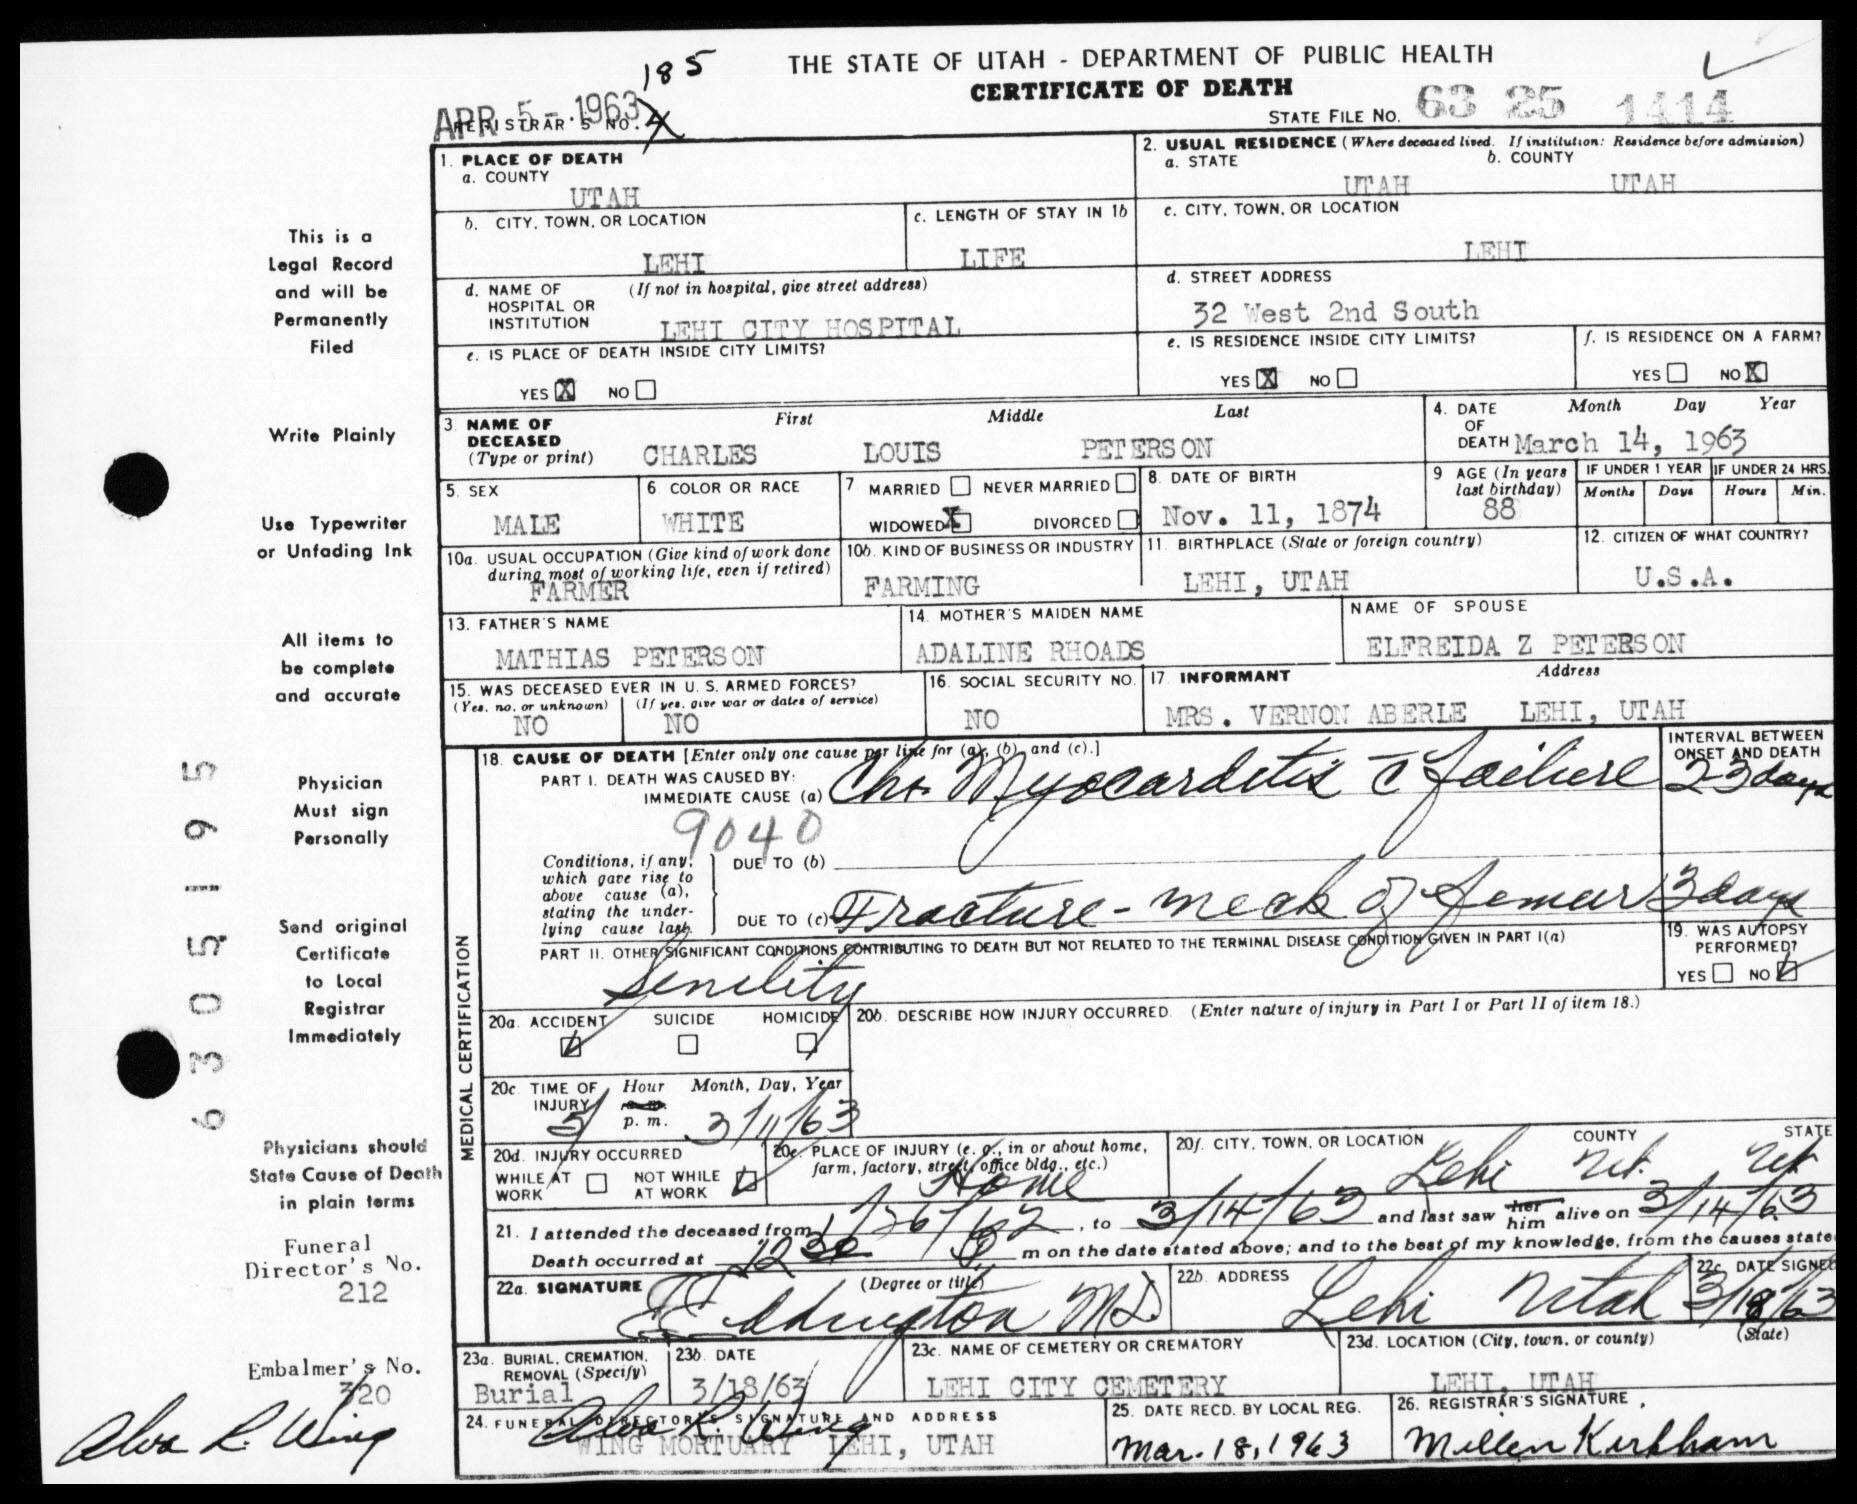 185
THE STATE OF UTAH - DEPARTMENT OF PUBLIC HEALTH
CERTIFICATE OF DEATH
APR 5 - 1963
REGISTRAR'S NO.
STATE FILE NO. 63 25 1414
1. PLACE OF DEATH
a. COUNTY
UTAH
2. USUAL RESIDENCE (Where deceased lived. If institution: Residence before admission)
a. STATE b. COUNTY
UTAH UTAH
b. CITY, TOWN, OR LOCATION
LEHI
c. LENGTH OF STAY IN 1b
LIFE
c. CITY, TOWN, OR LOCATION
LEHI
d. NAME OF HOSPITAL OR INSTITUTION (If not in hospital, give street address)
LEHI CITY HOSPITAL
d. STREET ADDRESS
32 West 2nd South
e. IS PLACE OF DEATH INSIDE CITY LIMITS?
YES X NO
e. IS RESIDENCE INSIDE CITY LIMITS?
YES X NO
f. IS RESIDENCE ON A FARM?
YES NO X
3. NAME OF DECEASED (Type or print)
First Middle Last
CHARLES LOUIS PETERSON
4. DATE OF DEATH Month Day Year
March 14, 1963
5. SEX
MALE
6. COLOR OR RACE
WHITE
7. MARRIED NEVER MARRIED
WIDOWED X DIVORCED
8. DATE OF BIRTH
Nov. 11, 1874
9 AGE (In years last birthday)
88
IF UNDER 1 YEAR
Months Days
IF UNDER 24 HRS.
Hours Min.
10a. USUAL OCCUPATION (Give kind of work done during most of working life, even if retired)
FARMER
10b. KIND OF BUSINESS OR INDUSTRY
FARMING
11. BIRTHPLACE (State or foreign country)
LEHI, UTAH
12. CITIZEN OF WHAT COUNTRY?
U.S.A.
13. FATHER'S NAME
MATHIAS PETERSON
14. MOTHER'S MAIDEN NAME
ADALINE RHOADS
NAME OF SPOUSE
ELFREIDA Z PETERSON
15. WAS DECEASED EVER IN U. S. ARMED FORCES?
(Yes, no, or unknown) (If yes, give war or dates of service)
NO NO
16. SOCIAL SECURITY NO.
NO
17. INFORMANT Address
MRS. VERNON ABERLE LEHI, UTAH
MEDICAL CERTIFICATION
18. CAUSE OF DEATH [Enter only one cause per line for (a), (b), and (c).]
INTERVAL BETWEEN ONSET AND DEATH
PART I. DEATH WAS CAUSED BY:
IMMEDIATE CAUSE (a) Chr. Myocarditis c̄ failure 23 days
9040
Conditions, if any, which gave rise to above cause (a), stating the underlying cause last.
DUE TO (b)
DUE TO (c) Fracture - neck of femur 3 days
PART II. OTHER SIGNIFICANT CONDITIONS CONTRIBUTING TO DEATH BUT NOT RELATED TO THE TERMINAL DISEASE CONDITION GIVEN IN PART I(a)
Senility
19. WAS AUTOPSY PERFORMED?
YES NO
20a. ACCIDENT SUICIDE HOMICIDE
20b. DESCRIBE HOW INJURY OCCURRED. (Enter nature of injury in Part I or Part II of item 18.)
20c. TIME OF INJURY Hour Month, Day, Year
5 p. m. 3/11/63
20d. INJURY OCCURRED
WHILE AT WORK NOT WHILE AT WORK
20e. PLACE OF INJURY (e. g., in or about home, farm, factory, street, office bldg., etc.)
Home
20f. CITY, TOWN, OR LOCATION COUNTY STATE
Lehi Ut. Ut
21. I attended the deceased from 1/26/62, to 3/14/63 and last saw her him alive on 3/14/63
Death occurred at 12 30 P m on the date stated above; and to the best of my knowledge, from the causes state
22a. SIGNATURE (Degree or title)
Eddington MD
22b. ADDRESS
Lehi Utah
22c. DATE SIGNED
3/18/63
23a. BURIAL, CREMATION, REMOVAL (Specify)
Burial
23b. DATE
3/18/63
23c. NAME OF CEMETERY OR CREMATORY
LEHI CITY CEMETERY
23d. LOCATION (City, town, or county) (State)
LEHI, UTAH
24. FUNERAL DIRECTOR'S SIGNATURE AND ADDRESS
Alva R. Wing
WING MORTUARY LEHI, UTAH
25. DATE RECD. BY LOCAL REG.
Mar. 18, 1963
26. REGISTRAR'S SIGNATURE
Millen Kirkham
This is a
Legal Record
and will be
Permanently
Filed
Write Plainly
Use Typewriter
or Unfading Ink
All items to
be complete
and accurate
Physician
Must sign
Personally
Send original
Certificate
to Local
Registrar
Immediately
Physicians should
State Cause of Death
in plain terms
Funeral
Director's No.
212
Embalmer's No.
320
Alva R. Wing
6305195